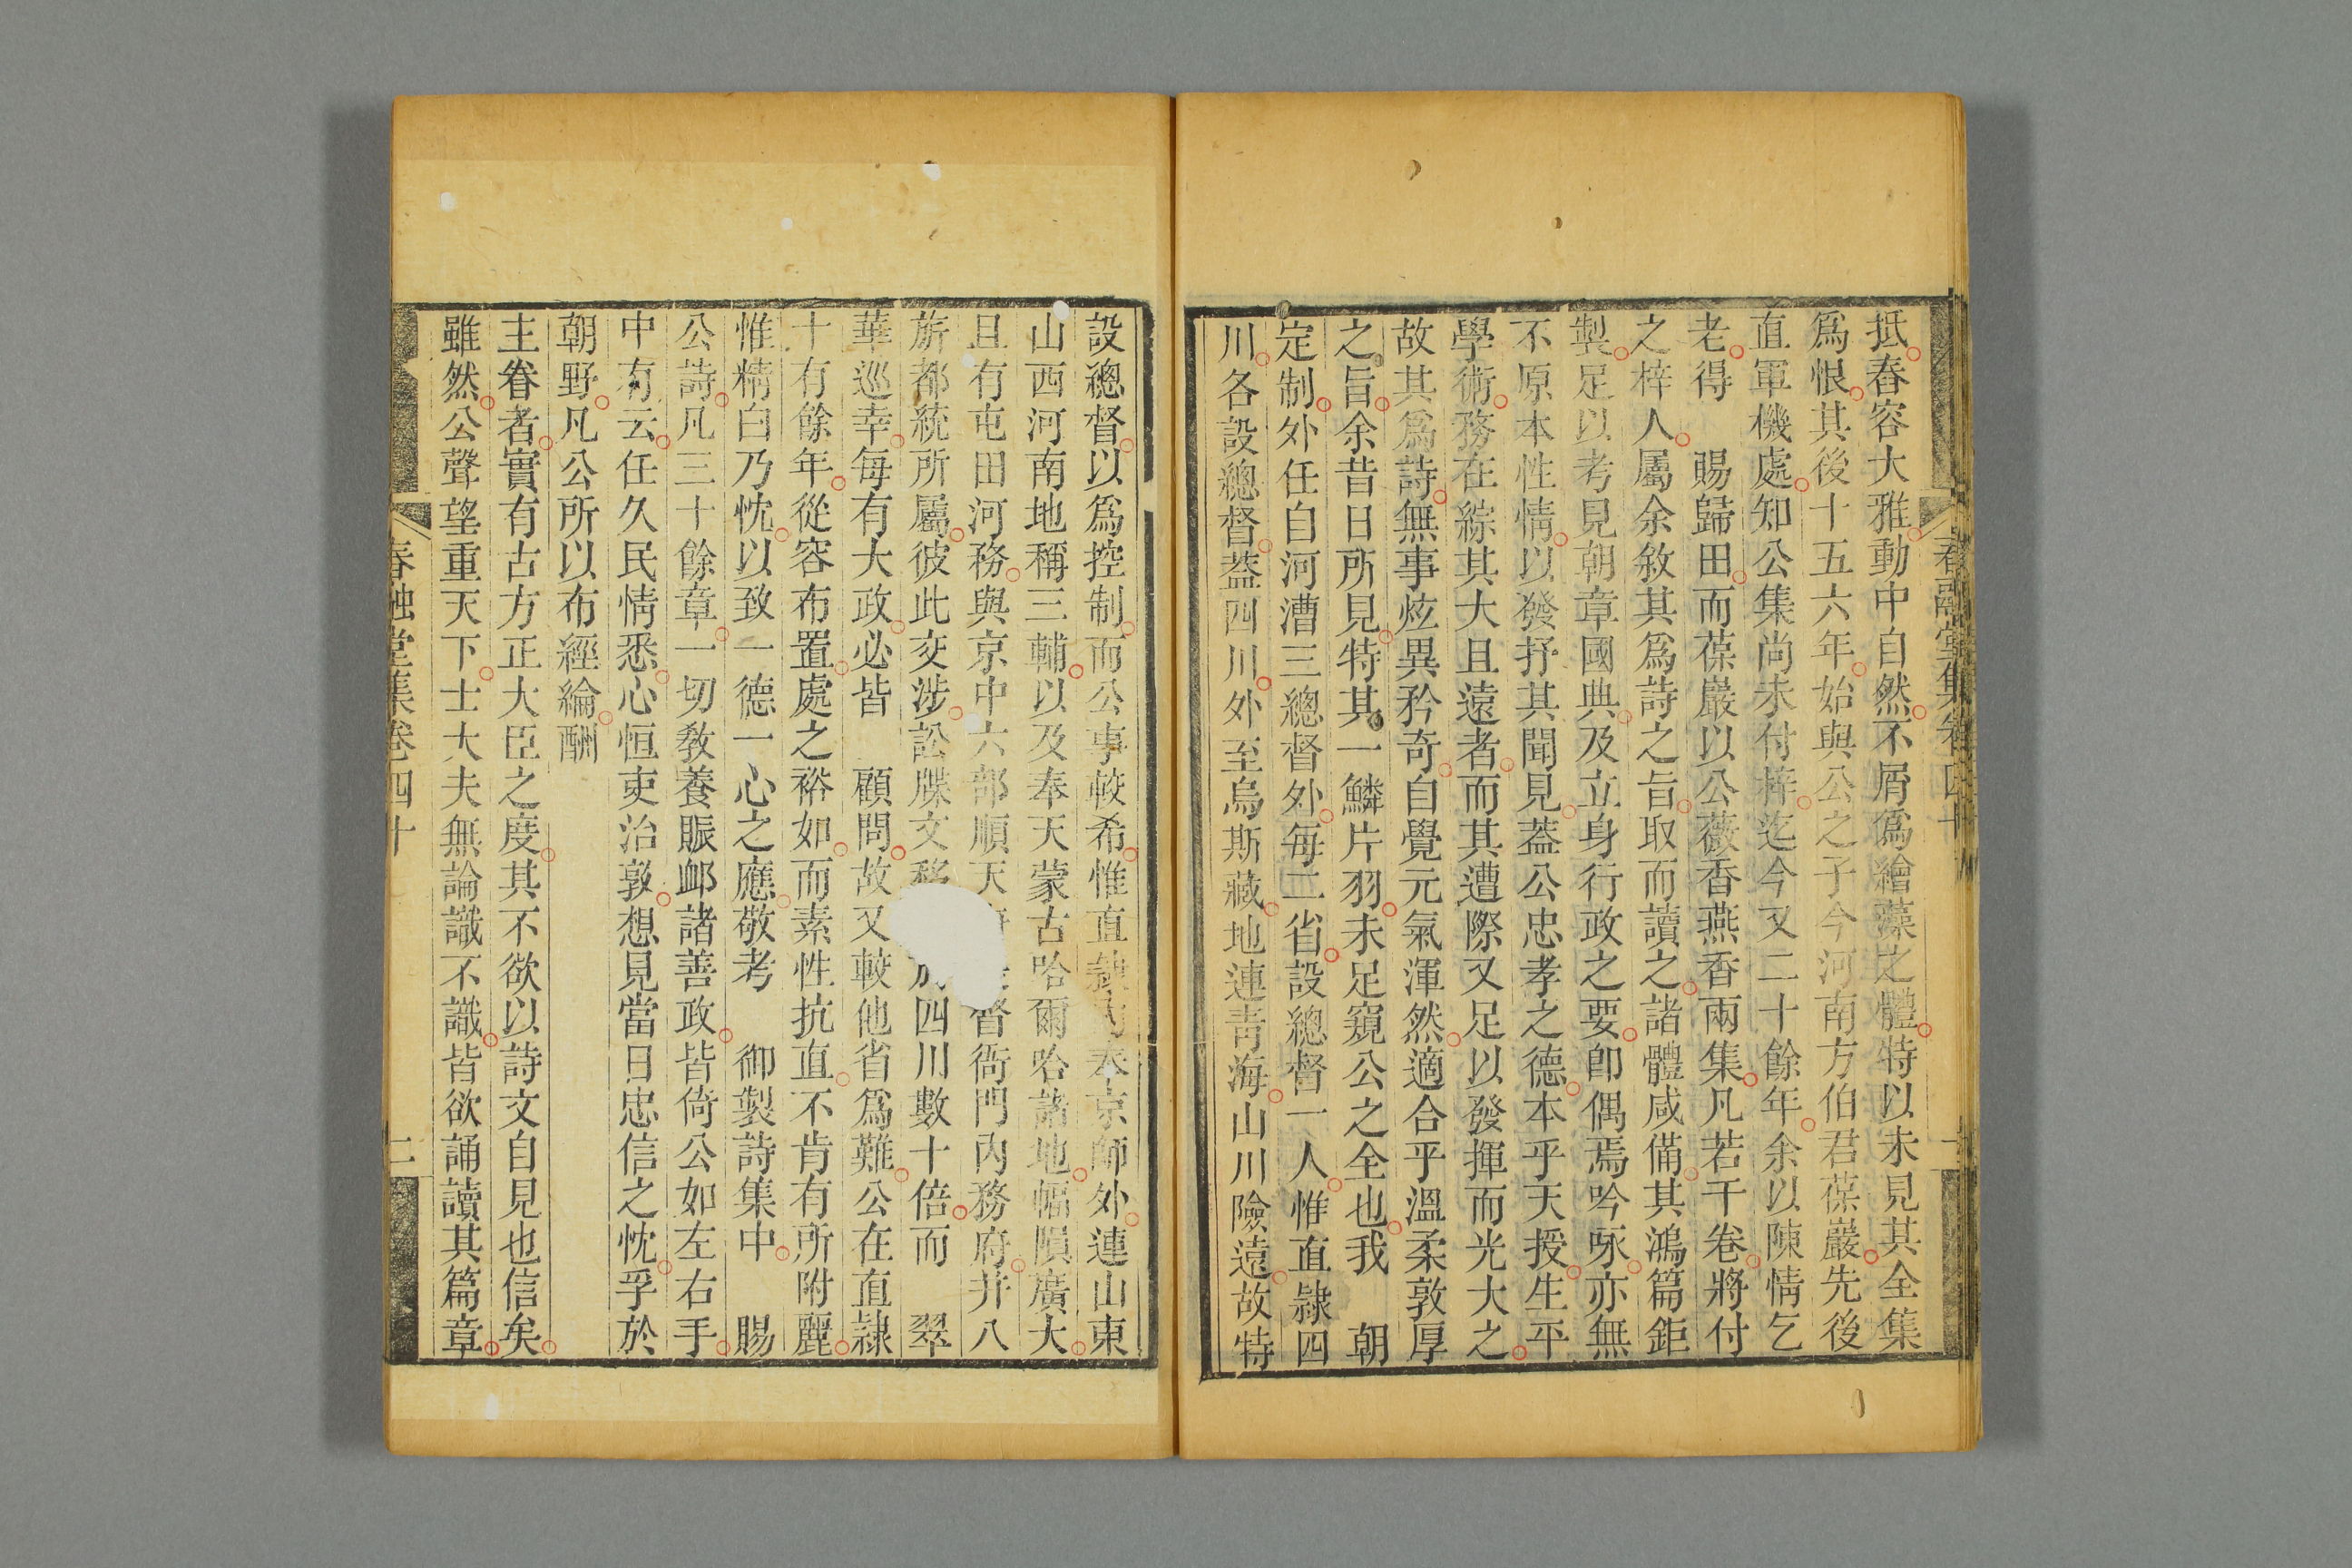 抵春容大雅動中自然不屑爲繪藻之體特以未見其全集
爲恨其後十五六年始與公之子今河南方伯君葆巖先後
直軍機處知公集尚未付梓迄今又二十餘年余以陳情乞
老得　賜歸田而葆巖以公薇香燕香兩集凡若干卷將付
之梓人屬余敘其爲詩之旨取而讀之諸體咸備其鴻篇鉅
製足以考見朝章國典及立身行政之要卽偶焉吟咏亦無
不原本性情以發抒其聞見蓋公忠孝之德本乎天授生平
學術務在綜其大且遠者而其遭際又足以發揮而光大之
故其爲詩無事炫異矜奇自覺元氣渾然適合乎溫柔敦厚
之旨余昔日所見特其一鱗片羽未足窺公之全也我　朝
定制外任自河漕三總督外每二省設總督一人惟直隸四
川各設總督蓋四川外至烏斯藏地連青海山川險遠故特
春融堂集卷四十
設總督以爲控制而公事較希惟直隸內奉京師外連山東
山西河南地稱三輔以及奉天蒙古哈爾哈諸地幅隕廣大
且有屯田河務與京中六部順天督衙門內務府并八
旂都統所屬彼此交涉訟牒文移於四川數十倍而　翠
華巡幸每有大政必皆　顧問故又較他省爲難公在直隸
十有餘年從容布置處之裕如而素性抗直不肯有所附麗
惟精白乃忱以致一德一心之應敬考　御製詩集中　賜
公詩凡三十餘章一切教養賑卹諸善政皆倚公如左右手
中有云任久民情悉心恒吏治敦想見當日忠信之忱孚於
朝野凡公所以布經綸酬
主眷者實有古方正大臣之度其不欲以詩文自見也信矣
雖然公聲望重天下士大夫無論識不識皆欲誦讀其篇章
春融堂集卷四十
二